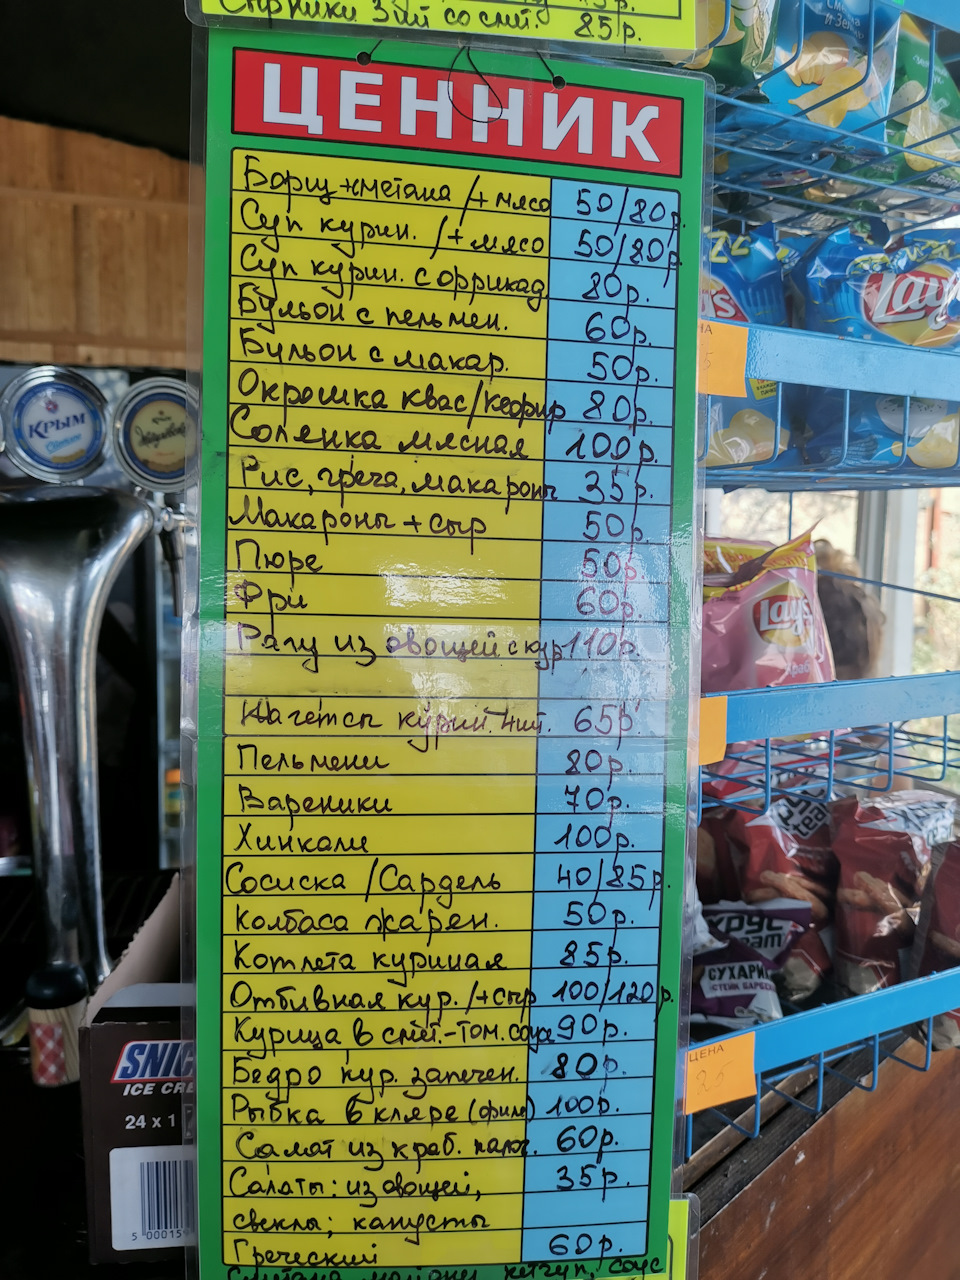 Сырники 3 шт со смет. 85р.
ЦЕННИК
Борщ +сметана /+ мясо 50/80р
Суп курин. /+ мясо 50/80р
Суп курин. с фрикад. 80р.
Бульон с пельмен. 60р.
Бульон с макар. 50р.
Окрошка квас/кефир 80р.
Солянка мясная 100р.
Рис, греча, макароны 35р.
Макароны + сыр 50р.
Пюре 50р.
Фри 60р.
Рагу из овощей с кур 110р.
Нагетсы курин. 4шт. 65р.
Пельмени 80р.
Вареники 70р.
Хинкали 100р.
Сосиска /Сардель 40/85р.
Колбаса жарен. 50р.
Котлета куриная 85р.
Отбивная кур. /+сыр 100/120р.
Курица в смет.-том. соусе 90р.
Бедро кур. запечен. 80р.
Рыбка в кляре (филе) 100р.
Салат из краб. палоч. 60р.
Салаты: из овощей, 35р.
свеклы; капусты
Греческий 60р.
Сметана, майонез, кетчуп, соус
КРЫМ
Lay's
Lay's
СУХАРИ
СТЕЙК БАРБЕКЮ
ЦЕНА
25
SNIC
ICE CRE
24 x 1
5 00015